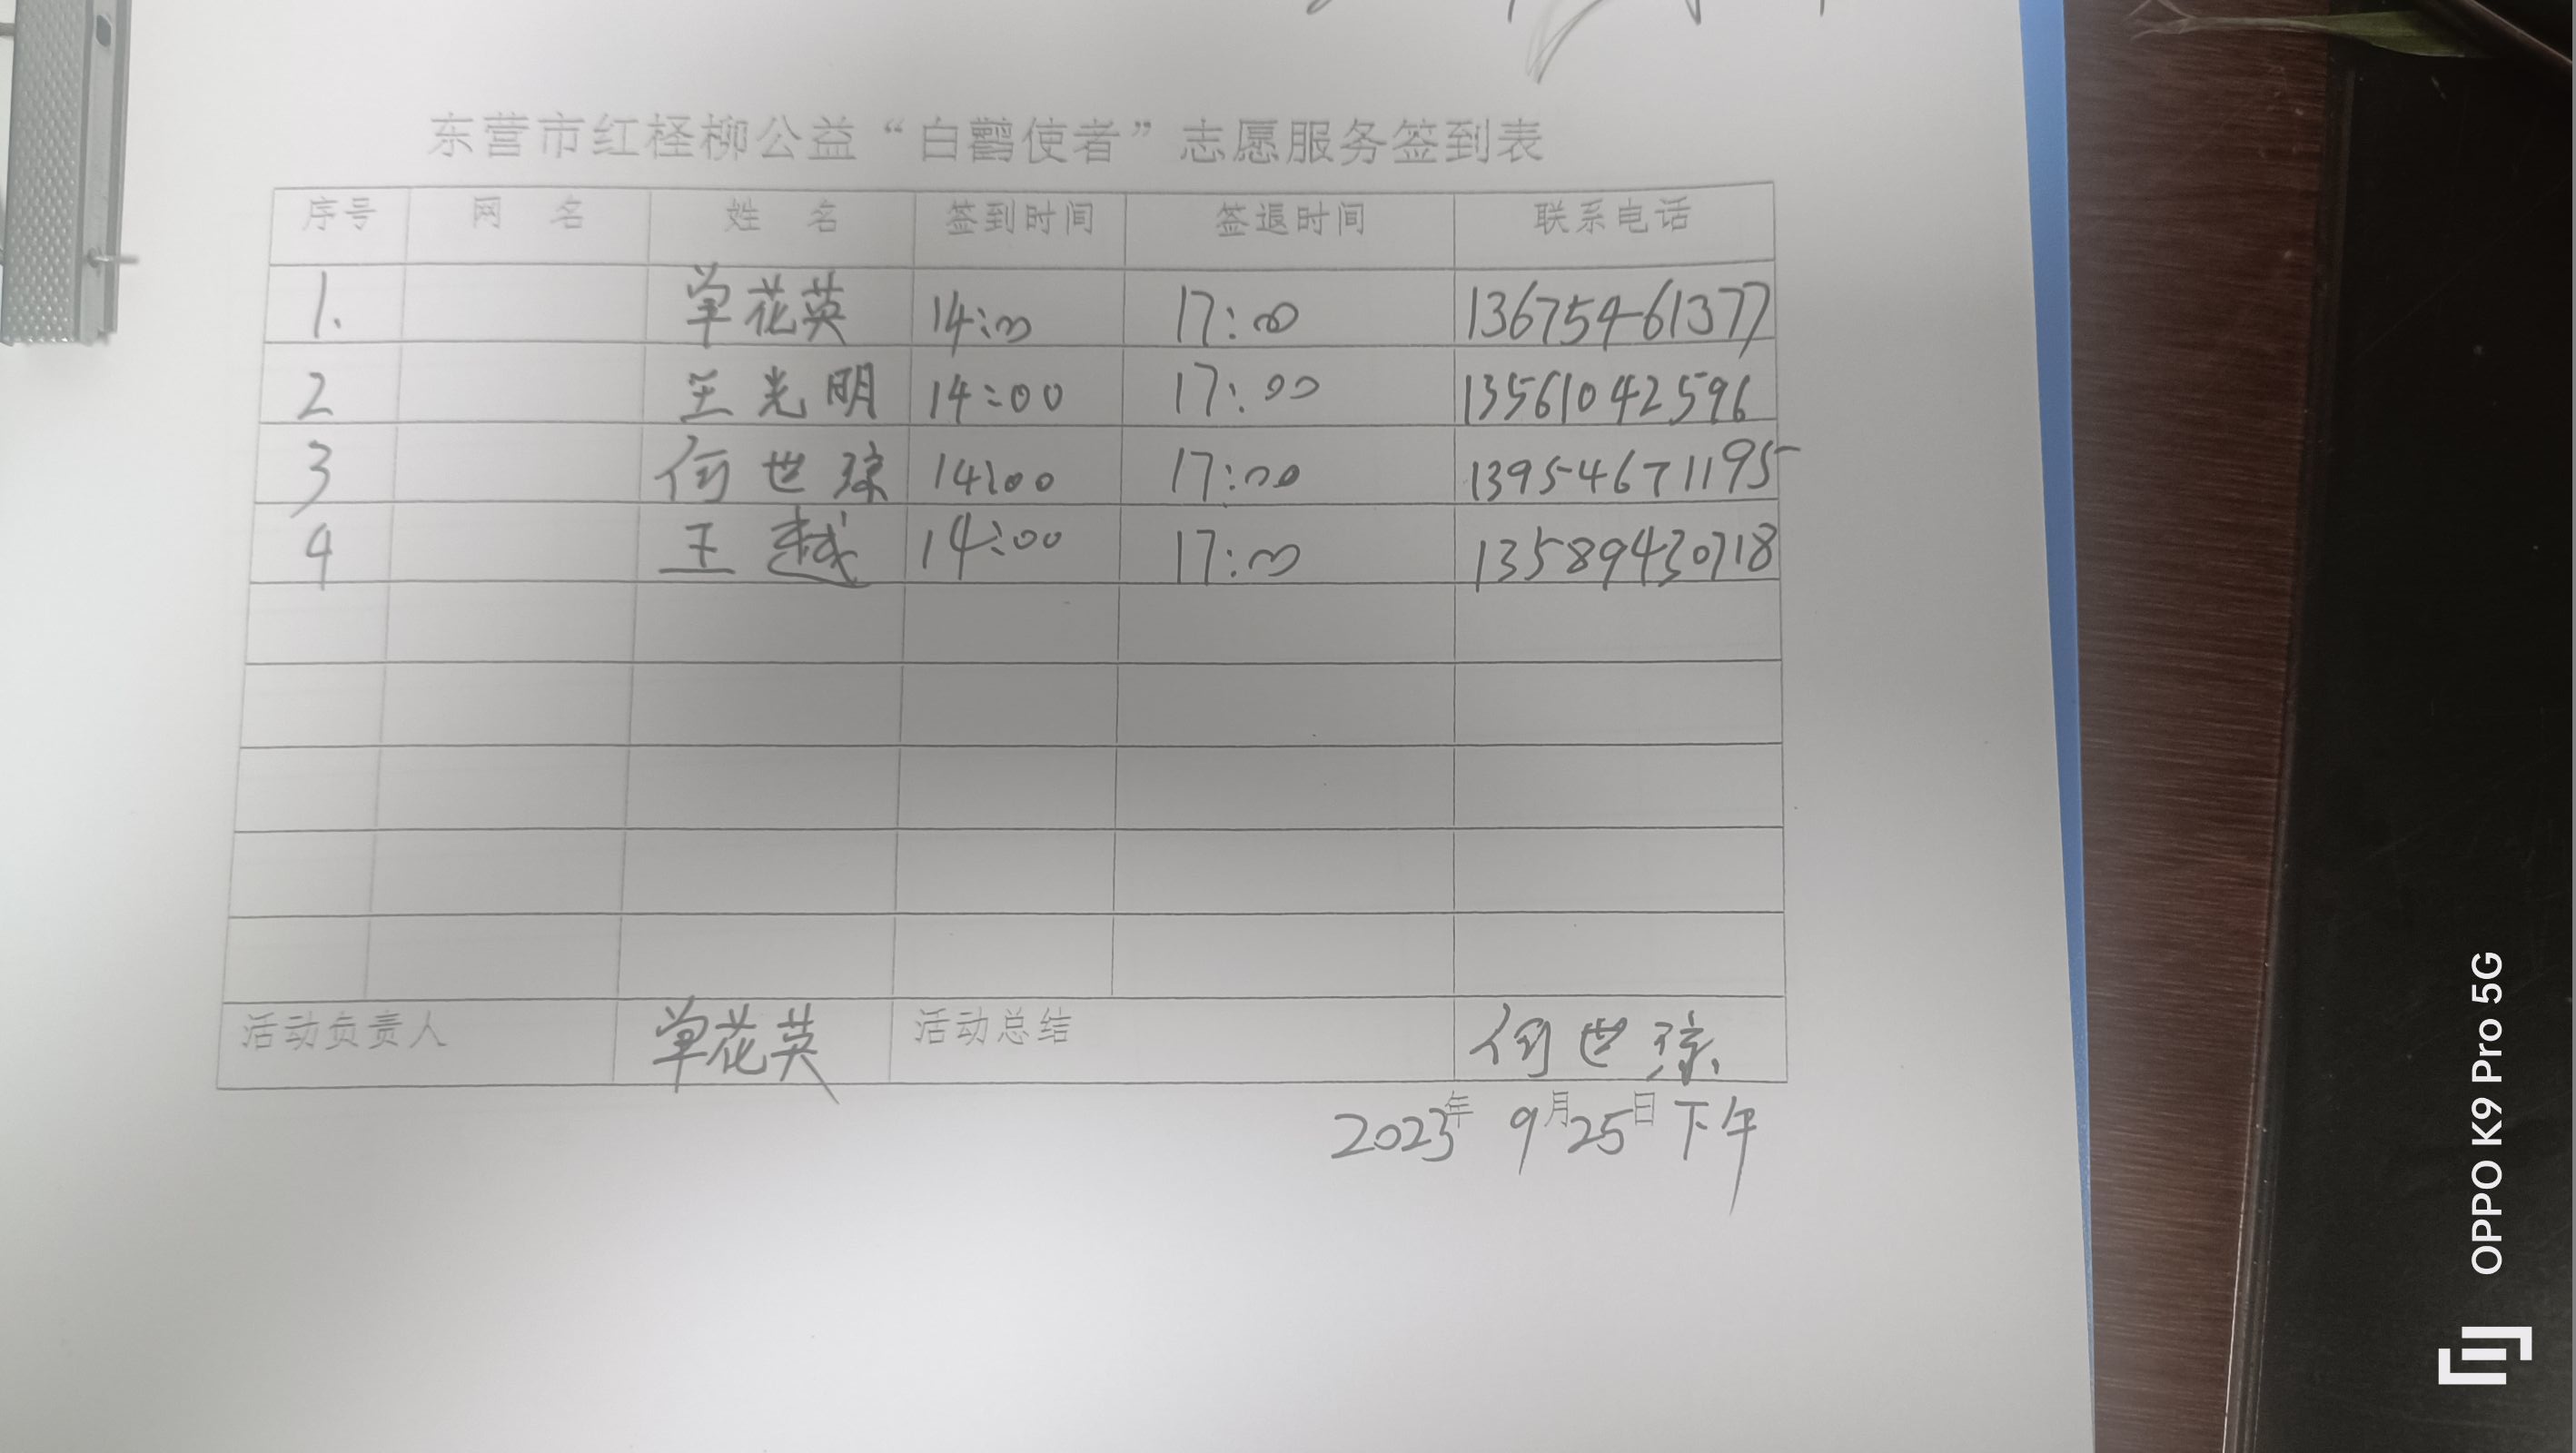 东营市红柽柳公益“白鹳使者”志愿服务签到表
序号 网 名 姓 名 签到时间 签退时间 联系电话
1. 单花英 14:00 17:00 13675461377
2 王光明 14:00 17:00 13561042596
3 何世琼 14:00 17:00 13954671195
4 王越 14:00 17:00 13589430718
活动负责人 单花英 活动总结 何世琼
2023年 9月25日下午
OPPO K9 Pro 5G